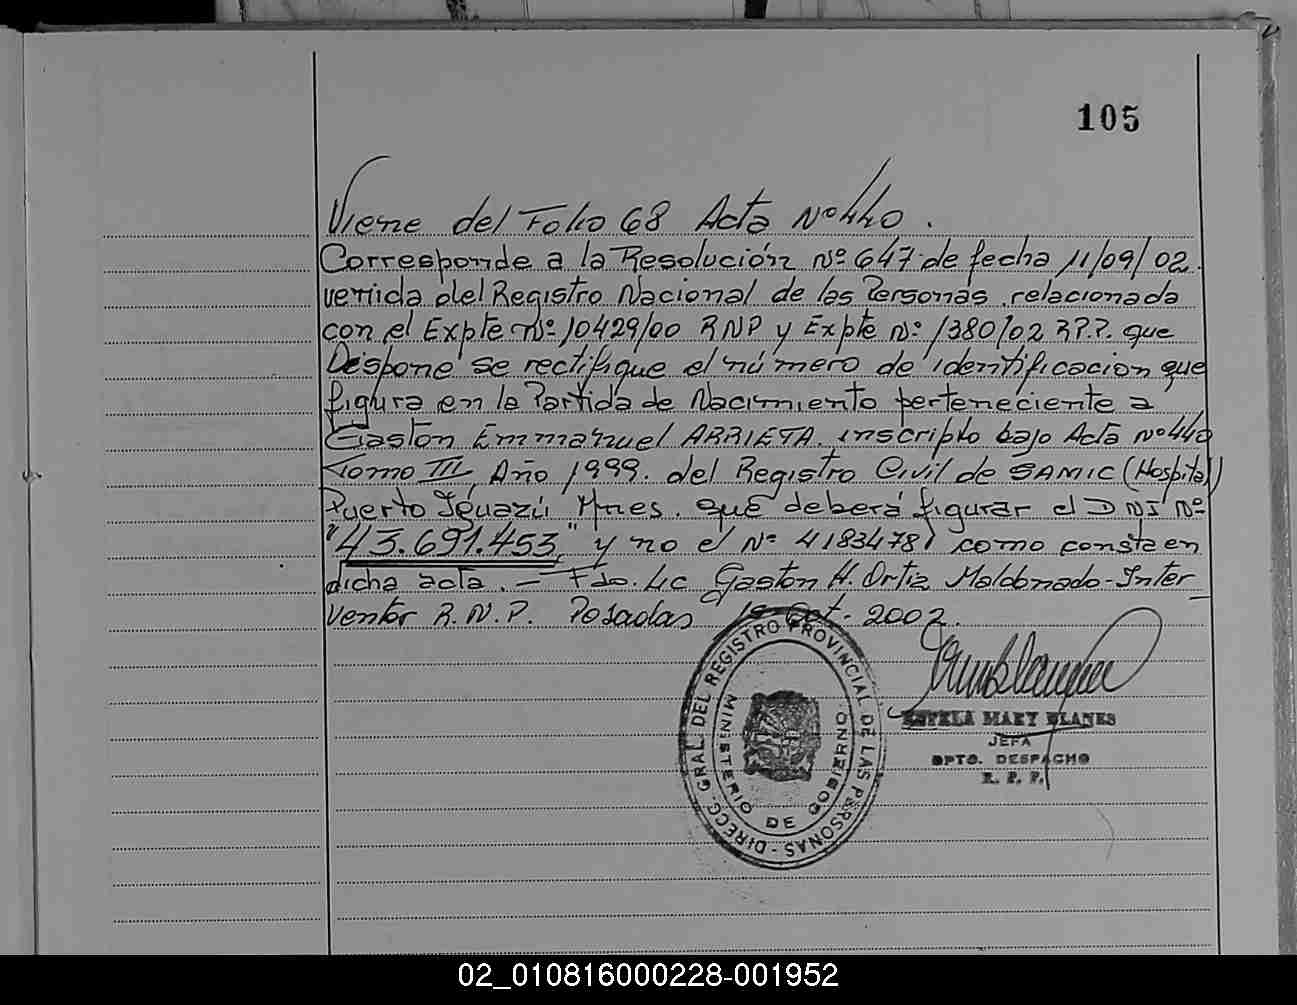 105
Viene del Folio 68 Acta Nº 440.
Corresponde a la Resolución Nº 647 de fecha 11/09/02.
vertida del Registro Nacional de las Personas relacionada
con el Expte Nº 10429/00 RNP y Expte Nº 1380/02 R.P.P. que
Dispone se rectifique el número de identificación que
figura en la Partida de Nacimiento perteneciente a
Gastón Emmanuel ARRIETA. inscripto bajo Acta Nº 440
Tomo III, Año 1999. del Registro Civil de SAMIC (Hospital)
Puerto Iguazú Mnes. que deberá figurar el DNI Nº
"43.691.453," y no el Nº 41834781 como consta en
dicha acta. — Fdo. Lc Gaston H. Ortiz Maldonado-Inter
ventor R.N.P. Posadas Oct. 2002.
DIRECC. GRAL. DEL REGISTRO PROVINCIAL DE LAS PERSONAS -
MINISTERIO DE GOBIERNO
ESTELA MARY BLANES
JEFA
DPTO. DESPACHO
R. P. P.
02_010816000228-001952